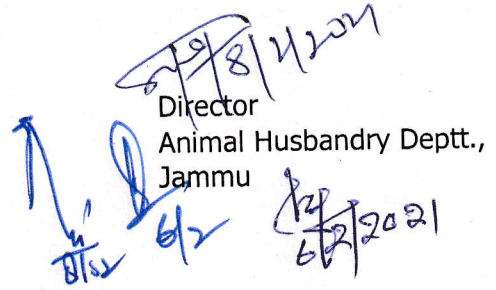 8/2/2021
Director
Animal Husbandry Deptt.,
Jammu
6/2
6/2/2021